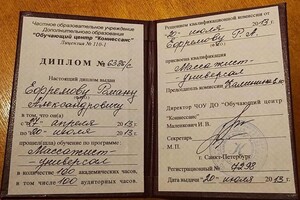 Частное образовательное учреждение
Дополнительного образования
"Обучающий центр "Коннессанс"
Лицензия № 110-1
ДИПЛОМ № 6396/2
Настоящий диплом выдан
Ефремову Роману
Александровичу
в том, что он(а)
с «27» апреля 2013 г.
по «20» июля 2013 г.
прошел(ла) обучение по программе
Массажист-
универсал
в количестве 100 академических часов,
в том числе 100 аудиторных часов.
Решением квалификационной комиссии от
20 июля 2013 г.
Ефремову Р.А.
присвоена квалификация
Массажист-
универсал
Председатель комиссии
Директор ЧОУ ДО "Обучающий центр
"Коннессанс"
Малинкович И. В.
Секретарь
М.П.
г. Санкт-Петербург
Регистрационный № 7298
Дата выдачи «20» июля 2013 г.